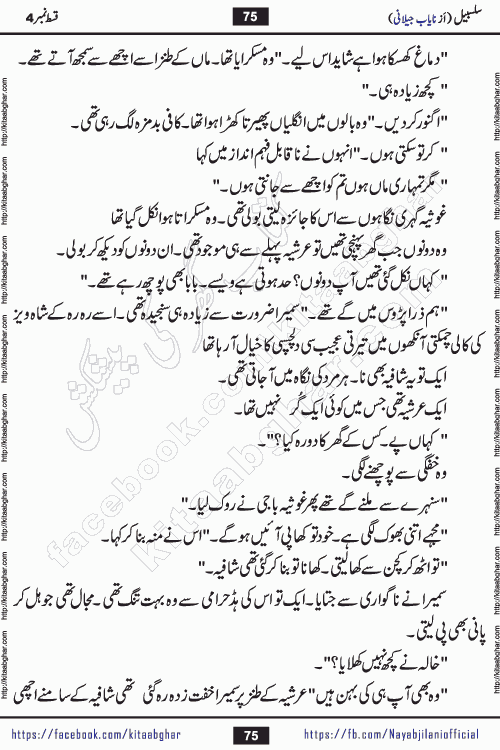 سلسبیل (از نایاب جیلانی)
75
قسط نمبر 4
"دماغ کھسکا ہوا ہے شاید اس لیے۔" وہ مسکرایا تھا۔ ماں کے طنز اسے اچھے سے سمجھ آتے تھے۔
"کچھ زیادہ ہی۔"
"اگنور کر دیں۔" وہ بالوں میں انگلیاں پھیرتا کھڑا ہوا تھا۔ کافی بدمزہ لگ رہی تھی۔
"کر تو سکتی ہوں۔" انہوں نے ناقابل فہم انداز میں کہا
"مگر تمہاری ماں ہوں تم کو اچھے سے جانتی ہوں۔"
غوثیہ گہری نگاہوں سے اس کا جائزہ لیتی بولی تھی۔ وہ مسکراتا ہوا نکل گیا تھا
وہ دونوں جب گھر پہنچی تھیں تو عرشیہ پہلے سے ہی موجود تھی۔ ان دونوں کو دیکھ کر بولی۔
"کہاں نکل گئی تھیں آپ دونوں؟ حد ہوتی ہے ویسے۔ بابا بھی پوچھ رہے تھے۔"
"ہم ذرا پڑوس میں گے تھے۔" سمیرا ضرورت سے زیادہ ہی سنجیدہ تھی۔ اسے رہ رہ کے شاہ ویز
کی کالی چمکتی آنکھوں میں تیرتی عجیب سی دلچسپی کا خیال آ رہا تھا
ایک تو یہ شافیہ بھی نا۔ ہر مرد کی نگاہ میں آ جاتی تھی۔
ایک عرشیہ تھی جس میں کوئی ایک گُر نہیں تھا۔
"کہاں پے۔ کس کے گھر کا دورہ کیا؟"۔
وہ خفگی سے پوچھنے لگی۔
"سنہرے سے ملنے گے تھے پھر غوثیہ باجی نے روک لیا۔"
"مجھے اتنی بھوک لگی ہے۔ خود تو کھا پی آئیں ہو گے۔" اس نے منہ بنا کر کہا۔
"تو اٹھ کر کچن سے کھا لیتی۔ کھانا تو بنا کر گئی تھی شافیہ۔"
سمیرا نے ناگواری سے جتایا۔ ایک تو اس کی ہڈ حرامی سے وہ بہت تنگ تھی۔ مجال تھی جو ہل کر
پانی بھی پی لیتی۔
"خالہ نے کچھ نہیں کھلایا؟"۔
"وہ بھی آپ ہی کی بہن ہیں" عرشیہ کے طنز پر سمیرا خفت زدہ رہ گئی تھی شافیہ کے سامنے اچھی
https://facebook.com/kitaabghar
75
https://fb.com/Nayabjilaniofficial
http://kitaabghar.com
facebook.com/kitaabghar
kitaabghar.com
کتاب گھر کی پیشکش